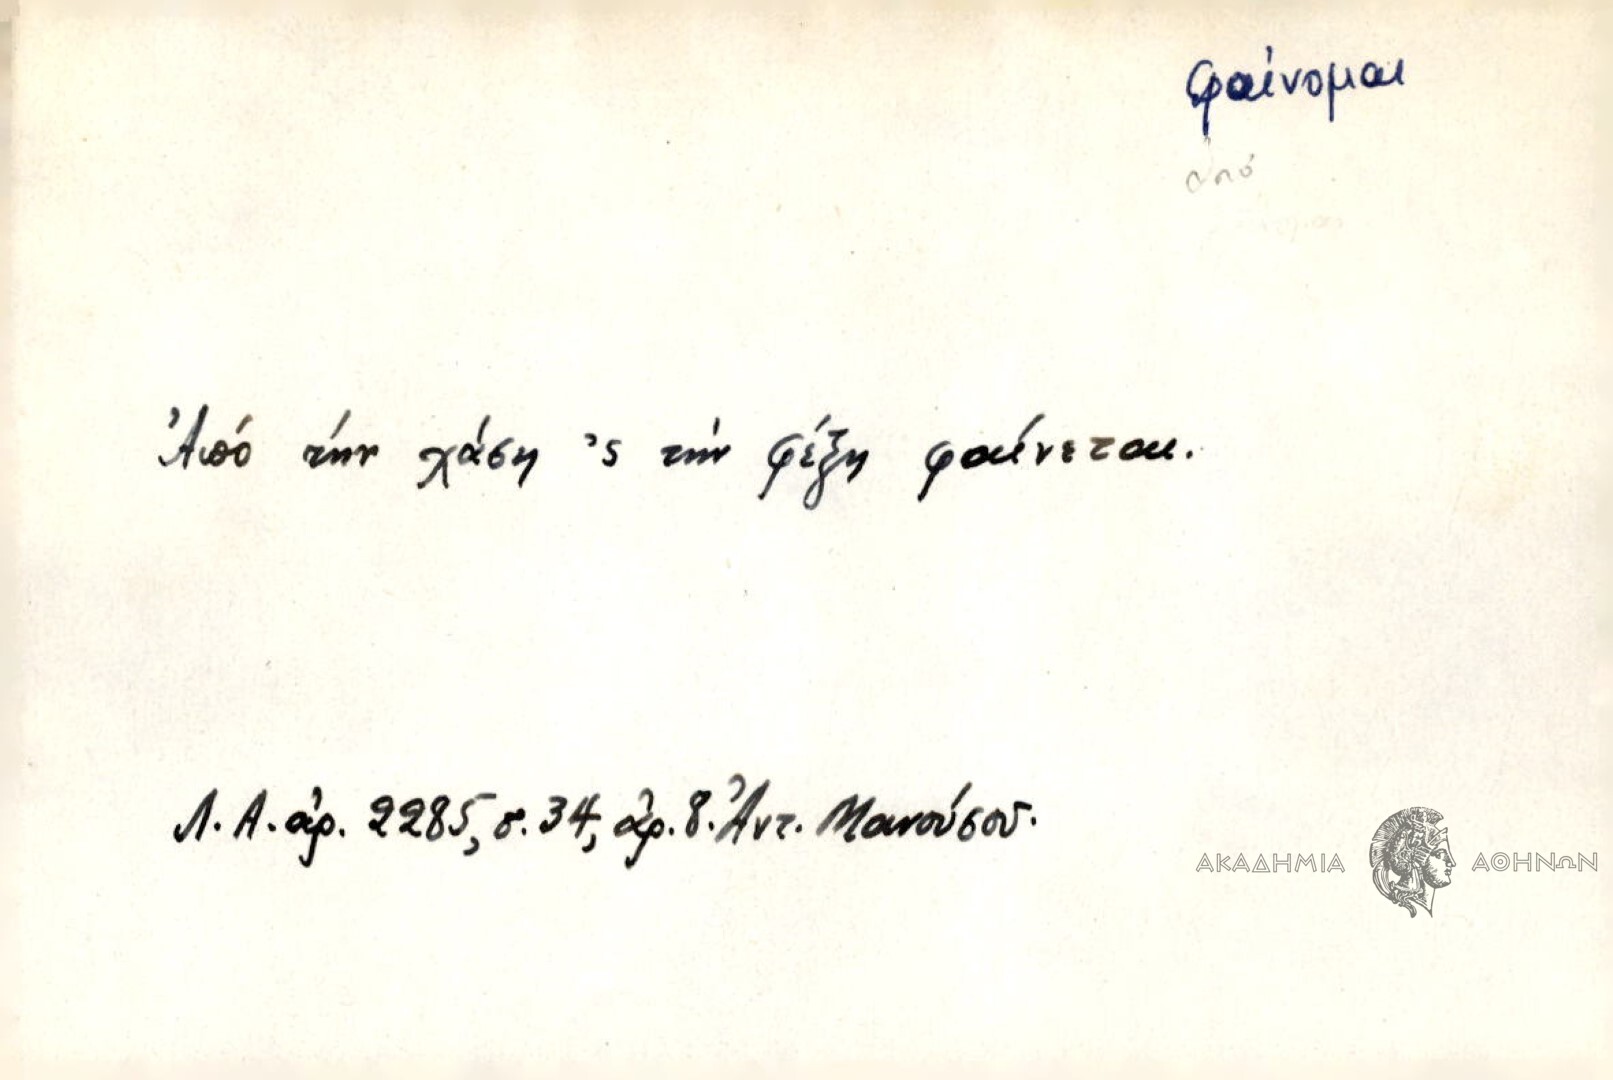 φαίνομαι
ἀπό
Ἀπό τήν χάση 'ς τήν φέξη φαίνεται.
Λ. Α. ἀρ. 2285, σ. 34, ἀρ. 8. Ἀντ. Μανούσου.
ΑΚΑΔΗΜΙΑ ΑΘΗΝΩΝ